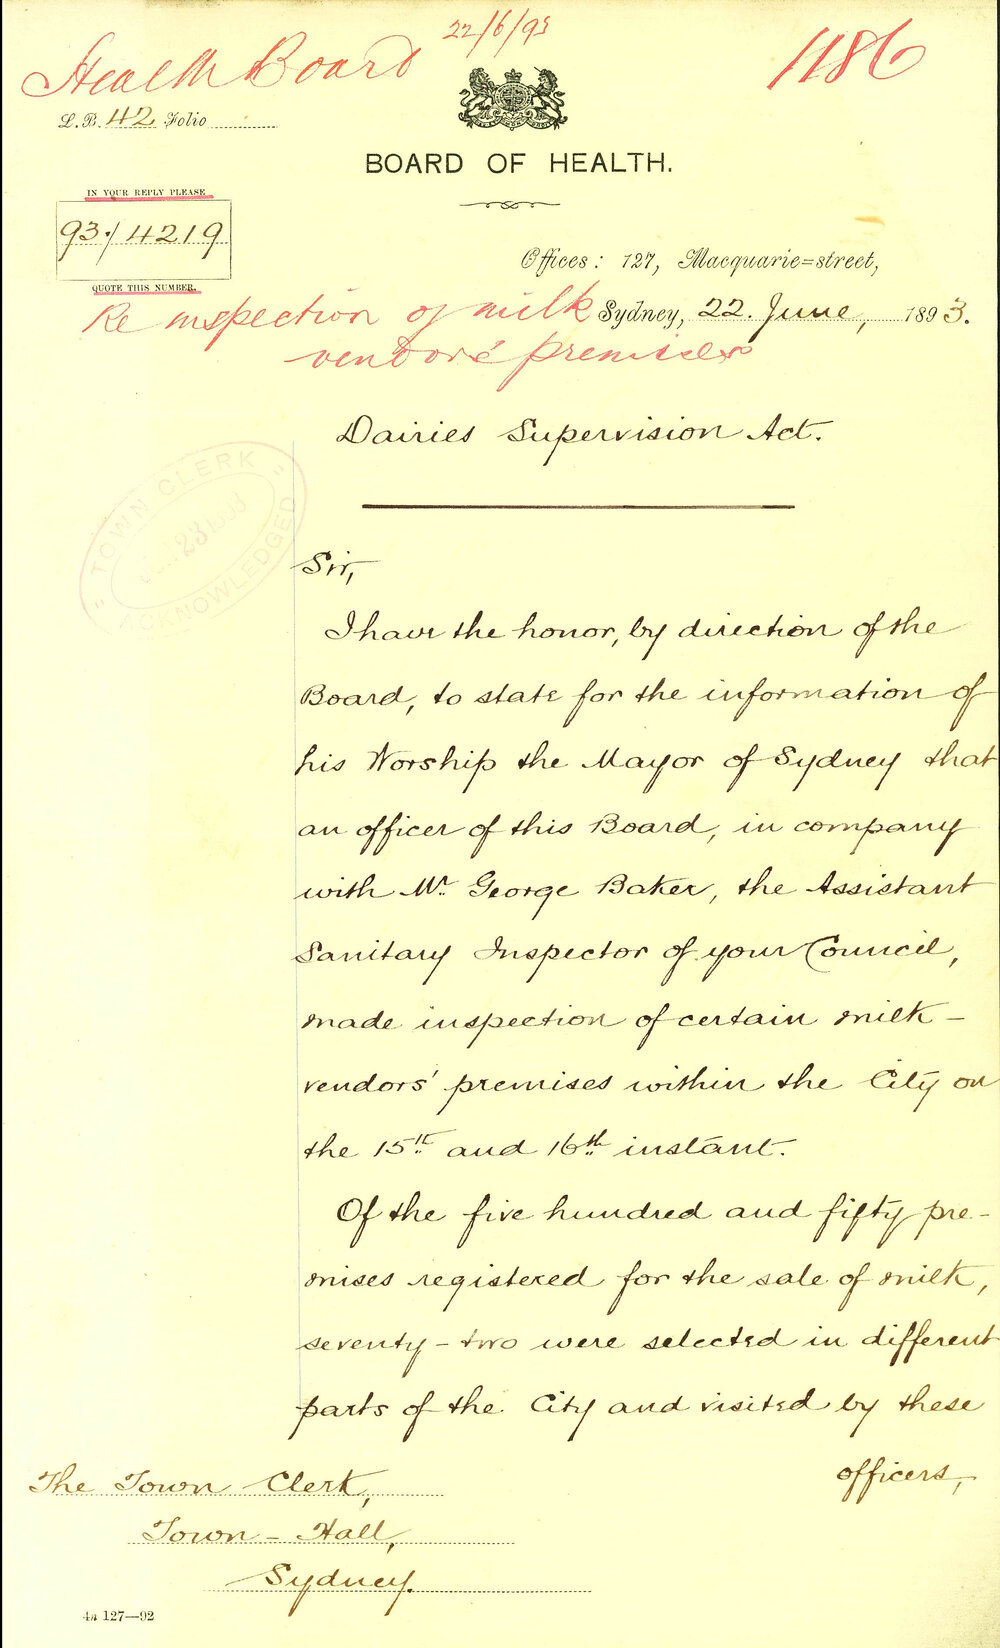 22/6/93
Health Board
1186
L. B. 42 Folio
BOARD OF HEALTH.
IN YOUR REPLY PLEASE
93./4219
QUOTE THIS NUMBER.
Offices: 127, Macquarie=street,
Sydney, 22. June, 1893.
Re inspection of milk
vendors' premises
Dairies Supervision Act.
"TOWN CLERK"
23 1893
ACKNOWLEDGED
Sir,
I have the honor, by direction of the
Board, to state for the information of
his Worship the Mayor of Sydney that
an officer of this Board, in company
with Mr. George Baker, the Assistant
Sanitary Inspector of your Council,
made inspection of certain milk-
vendors' premises within the City on
the 15th and 16th instant.
Of the five hundred and fifty pre-
mises registered for the sale of milk,
seventy-two were selected in different
parts of the City and visited by these
officers,
The Town Clerk,
Town-Hall,
Sydney.
4a 127—92